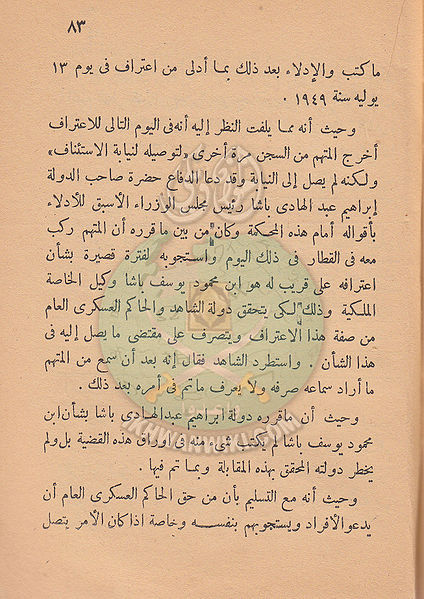 ٨٣
ما كتب والإدلاء بعد ذلك بما أدلى من اعتراف فى يوم ١٣
يوليه سنة ١٩٤٩ .
وحيث أنه مما يلفت النظر إليه أنه فى اليوم التالى للاعتراف
أخرج المتهم من السجن مرة أخرى «لتوصيله لنيابة الاستئناف»
ولكنه لم يصل إلى النيابة وقد دعا الدفاع حضرة صاحب الدولة
إبراهيم عبد الهادى باشا رئيس مجلس الوزراء الأسبق للأدلاء
بأقواله أمام هذه المحكمة وكان من بين ما قرره أن المتهم ركب
معه فى القطار فى ذلك اليوم واستجوبه لفترة قصيرة بشأن
اعترافه على قريب له هو ابن محمود يوسف باشا وكيل الخاصة
الملكية وذلك لكى يتحقق دولة الشاهد والحاكم العسكرى العام
من صفة هذا الاعتراف ويتصرف على مقتضى ما يصل إليه فى
هذا الشأن . واستطرد الشاهد فقال إنه بعد أن سمع من المتهم
ما أراد سماعه صرفه ولا يعرف ما تم فى أمره بعد ذلك .
وحيث أن ما قرره دولة ابراهيم عبد الهادى باشا بشأن ابن
محمود يوسف باشا لم يكتب شىء منه فى أوراق هذه القضية بل ولم
يخطر دولته المحقق بهذه المقابلة وبما تم فيها .
وحيث أنه مع التسليم بأن من حق الحاكم العسكرى العام أن
يدعو الأفراد ويستجوبهم بنفسه وخاصة اذا كان الأمر يتصل
IKHWANWIKI.COM